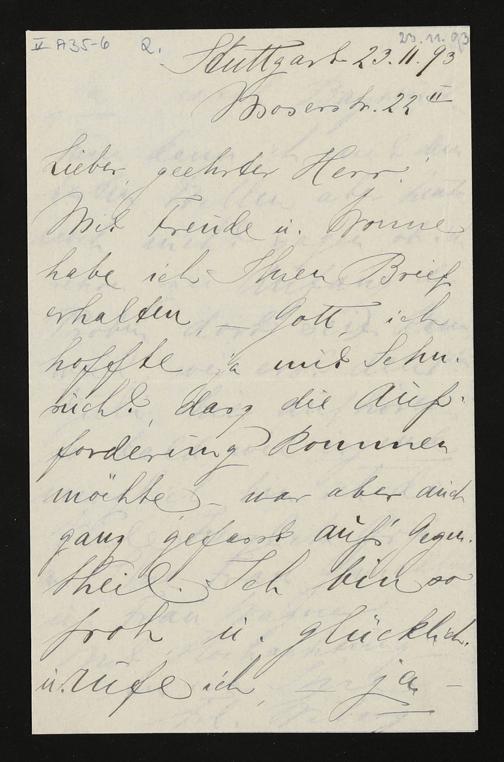 II A35-6 2. 23.11.93
Stuttgart 23.11.93
Moserstr. 22 II
Lieber, geehrter Herr!
Mit Freude u. Wonne
habe ich Ihren Brief
erhalten – Gott ich
hoffte ja mit Sehn-
sucht, dass die Auf-
forderung kommen
möchte – war aber auch
ganz gefasst auf's Gegen-
theil. Ich bin so
froh u. glücklich.
u. rufe ich ja –